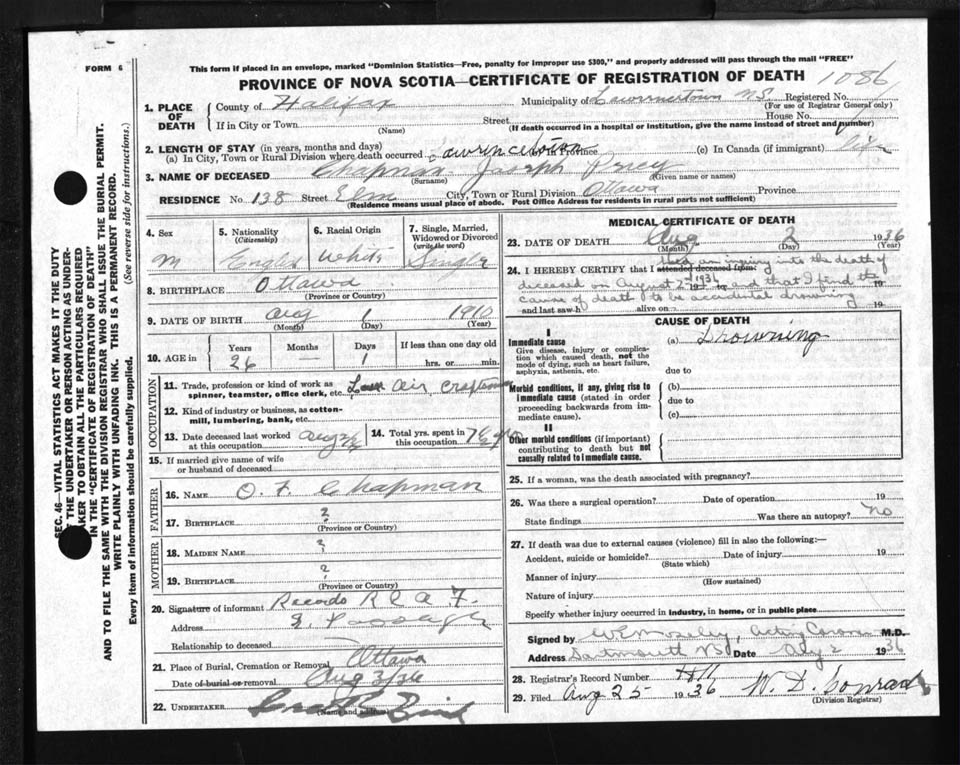 FORM 6
This form if placed in an envelope, marked "Dominion Statistics—Free, penalty for improper use $300," and properly addressed will pass through the mail "FREE"
PROVINCE OF NOVA SCOTIA—CERTIFICATE OF REGISTRATION OF DEATH 1086
1. PLACE OF DEATH
County of Halifax Municipality of NS Registered No.
(For use of Registrar General only)
If in City or Town Street House No.
(Name) (If death occurred in a hospital or institution, give the name instead of street and number)
2. LENGTH OF STAY (in years, months and days)
(a) In City, Town or Rural Division where death occurred Lawrencetown in Province (c) In Canada (if immigrant) life
3. NAME OF DECEASED Chapman Joseph Percy
(Surname) (Given name or names)
RESIDENCE No 138 Street Elm City, Town or Rural Division Ottawa Province
(Residence means usual place of abode. Post Office Address for residents in rural parts not sufficient)
4. Sex
M
5. Nationality
(Citizenship)
English
6. Racial Origin
White
7. Single, Married, Widowed or Divorced
(write the word)
Single
8. BIRTHPLACE Ottawa
(Province or Country)
9. DATE OF BIRTH Aug 1 1910
(Month) (Day) (Year)
10. AGE in
Years Months Days If less than one day old
26 — 1 hrs. or min.
OCCUPATION
11. Trade, profession or kind of work as spinner, teamster, office clerk, etc. Air Craftsman
12. Kind of industry or business, as cotton-mill, lumbering, bank, etc.
13. Date deceased last worked at this occupation Aug 2/36
14. Total yrs. spent in this occupation 7 1/2 yrs
15. If married give name of wife or husband of deceased
FATHER
16. NAME O. F. Chapman
17. BIRTHPLACE ?
(Province or Country)
MOTHER
18. MAIDEN NAME ?
19. BIRTHPLACE ?
(Province or Country)
20. Signature of informant Records R C A F.
Address E. Passage
Relationship to deceased
21. Place of Burial, Cremation or Removal Ottawa
Date of burial or removal Aug 3/36
22. UNDERTAKER
(Name and address)
MEDICAL CERTIFICATE OF DEATH
23. DATE OF DEATH Aug 2 1936
(Month) (Day) (Year)
24. I HEREBY CERTIFY that I attended deceased from: held an inquiry into the death of
deceased on August 2 1936 and that I find the
cause of death to be accidental drowning
and last saw h alive on 19
CAUSE OF DEATH
I
Immediate cause
Give disease, injury or complication which caused death, not the mode of dying, such as heart failure, asphyxia, asthenia, etc.
(a) Drowning
due to
Morbid conditions, if any, giving rise to immediate cause (stated in order proceeding backwards from immediate cause).
(b)
due to
(c)
II
Other morbid conditions (if important) contributing to death but not causally related to immediate cause.
25. If a woman, was the death associated with pregnancy?
26. Was there a surgical operation? Date of operation 19
State findings Was there an autopsy? no
27. If death was due to external causes (violence) fill in also the following:—
Accident, suicide or homicide? Date of injury 19
(State which)
Manner of injury
(How sustained)
Nature of injury
Specify whether injury occurred in industry, in home, or in public place
Signed by W E Moseley, Acting Coroner M.D.
Address Dartmouth NS Date Aug 2 1936
28. Registrar's Record Number
29. Filed Aug 25 1936 W. D. Conrad
(Division Registrar)
SEC. 46—VITAL STATISTICS ACT MAKES IT THE DUTY
OF THE UNDERTAKER OR PERSON ACTING AS UNDER-
TAKER TO OBTAIN ALL THE PARTICULARS REQUIRED
IN THE "CERTIFICATE OF REGISTRATION OF DEATH"
AND TO FILE THE SAME WITH THE DIVISION REGISTRAR WHO SHALL ISSUE THE BURIAL PERMIT.
WRITE PLAINLY WITH UNFADING INK. THIS IS A PERMANENT RECORD.
Every item of information should be carefully supplied. (See reverse side for instructions.)